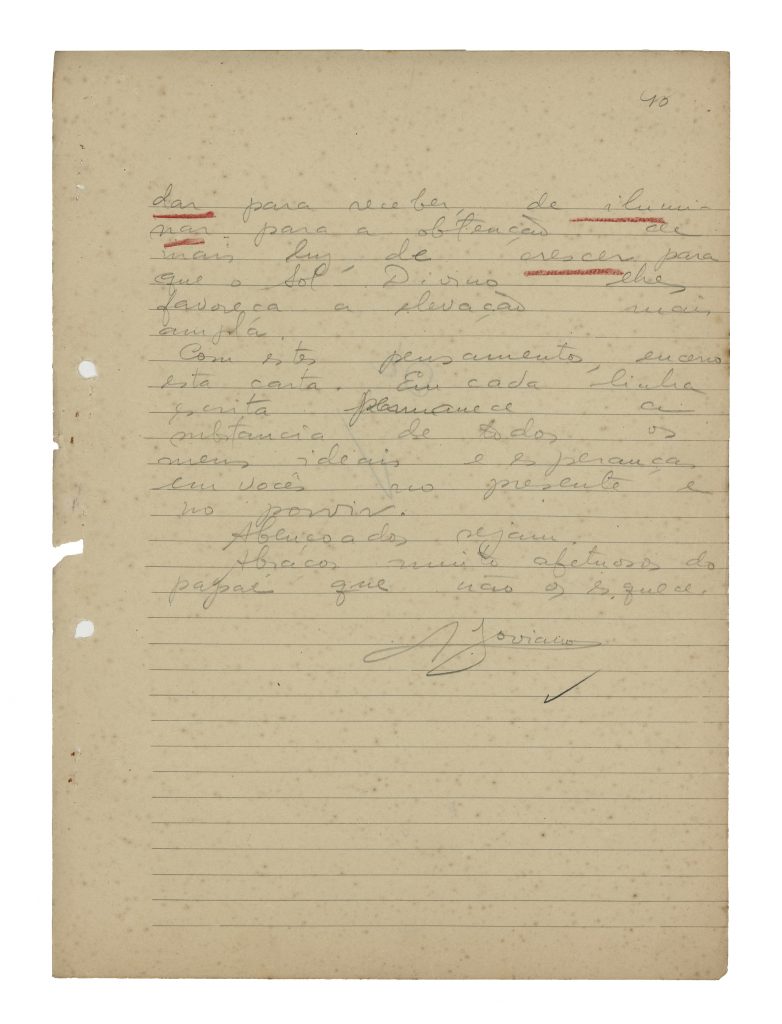 40
dar para receber, de ilumi-
nar para a obtenção de
mais luz, de crescer para
que o Sol Divino lhes
favoreça a elevação mais
ampla.
Com estes pensamentos, encerro
esta carta. Em cada linha
escrita permanece a
substancia de todos os
meus ideais e esperanças
em vocês no presente e
no porvir.
Abençoados sejam.
Abraços muito afetuosos do
papai que não os esquece.
A Joviano